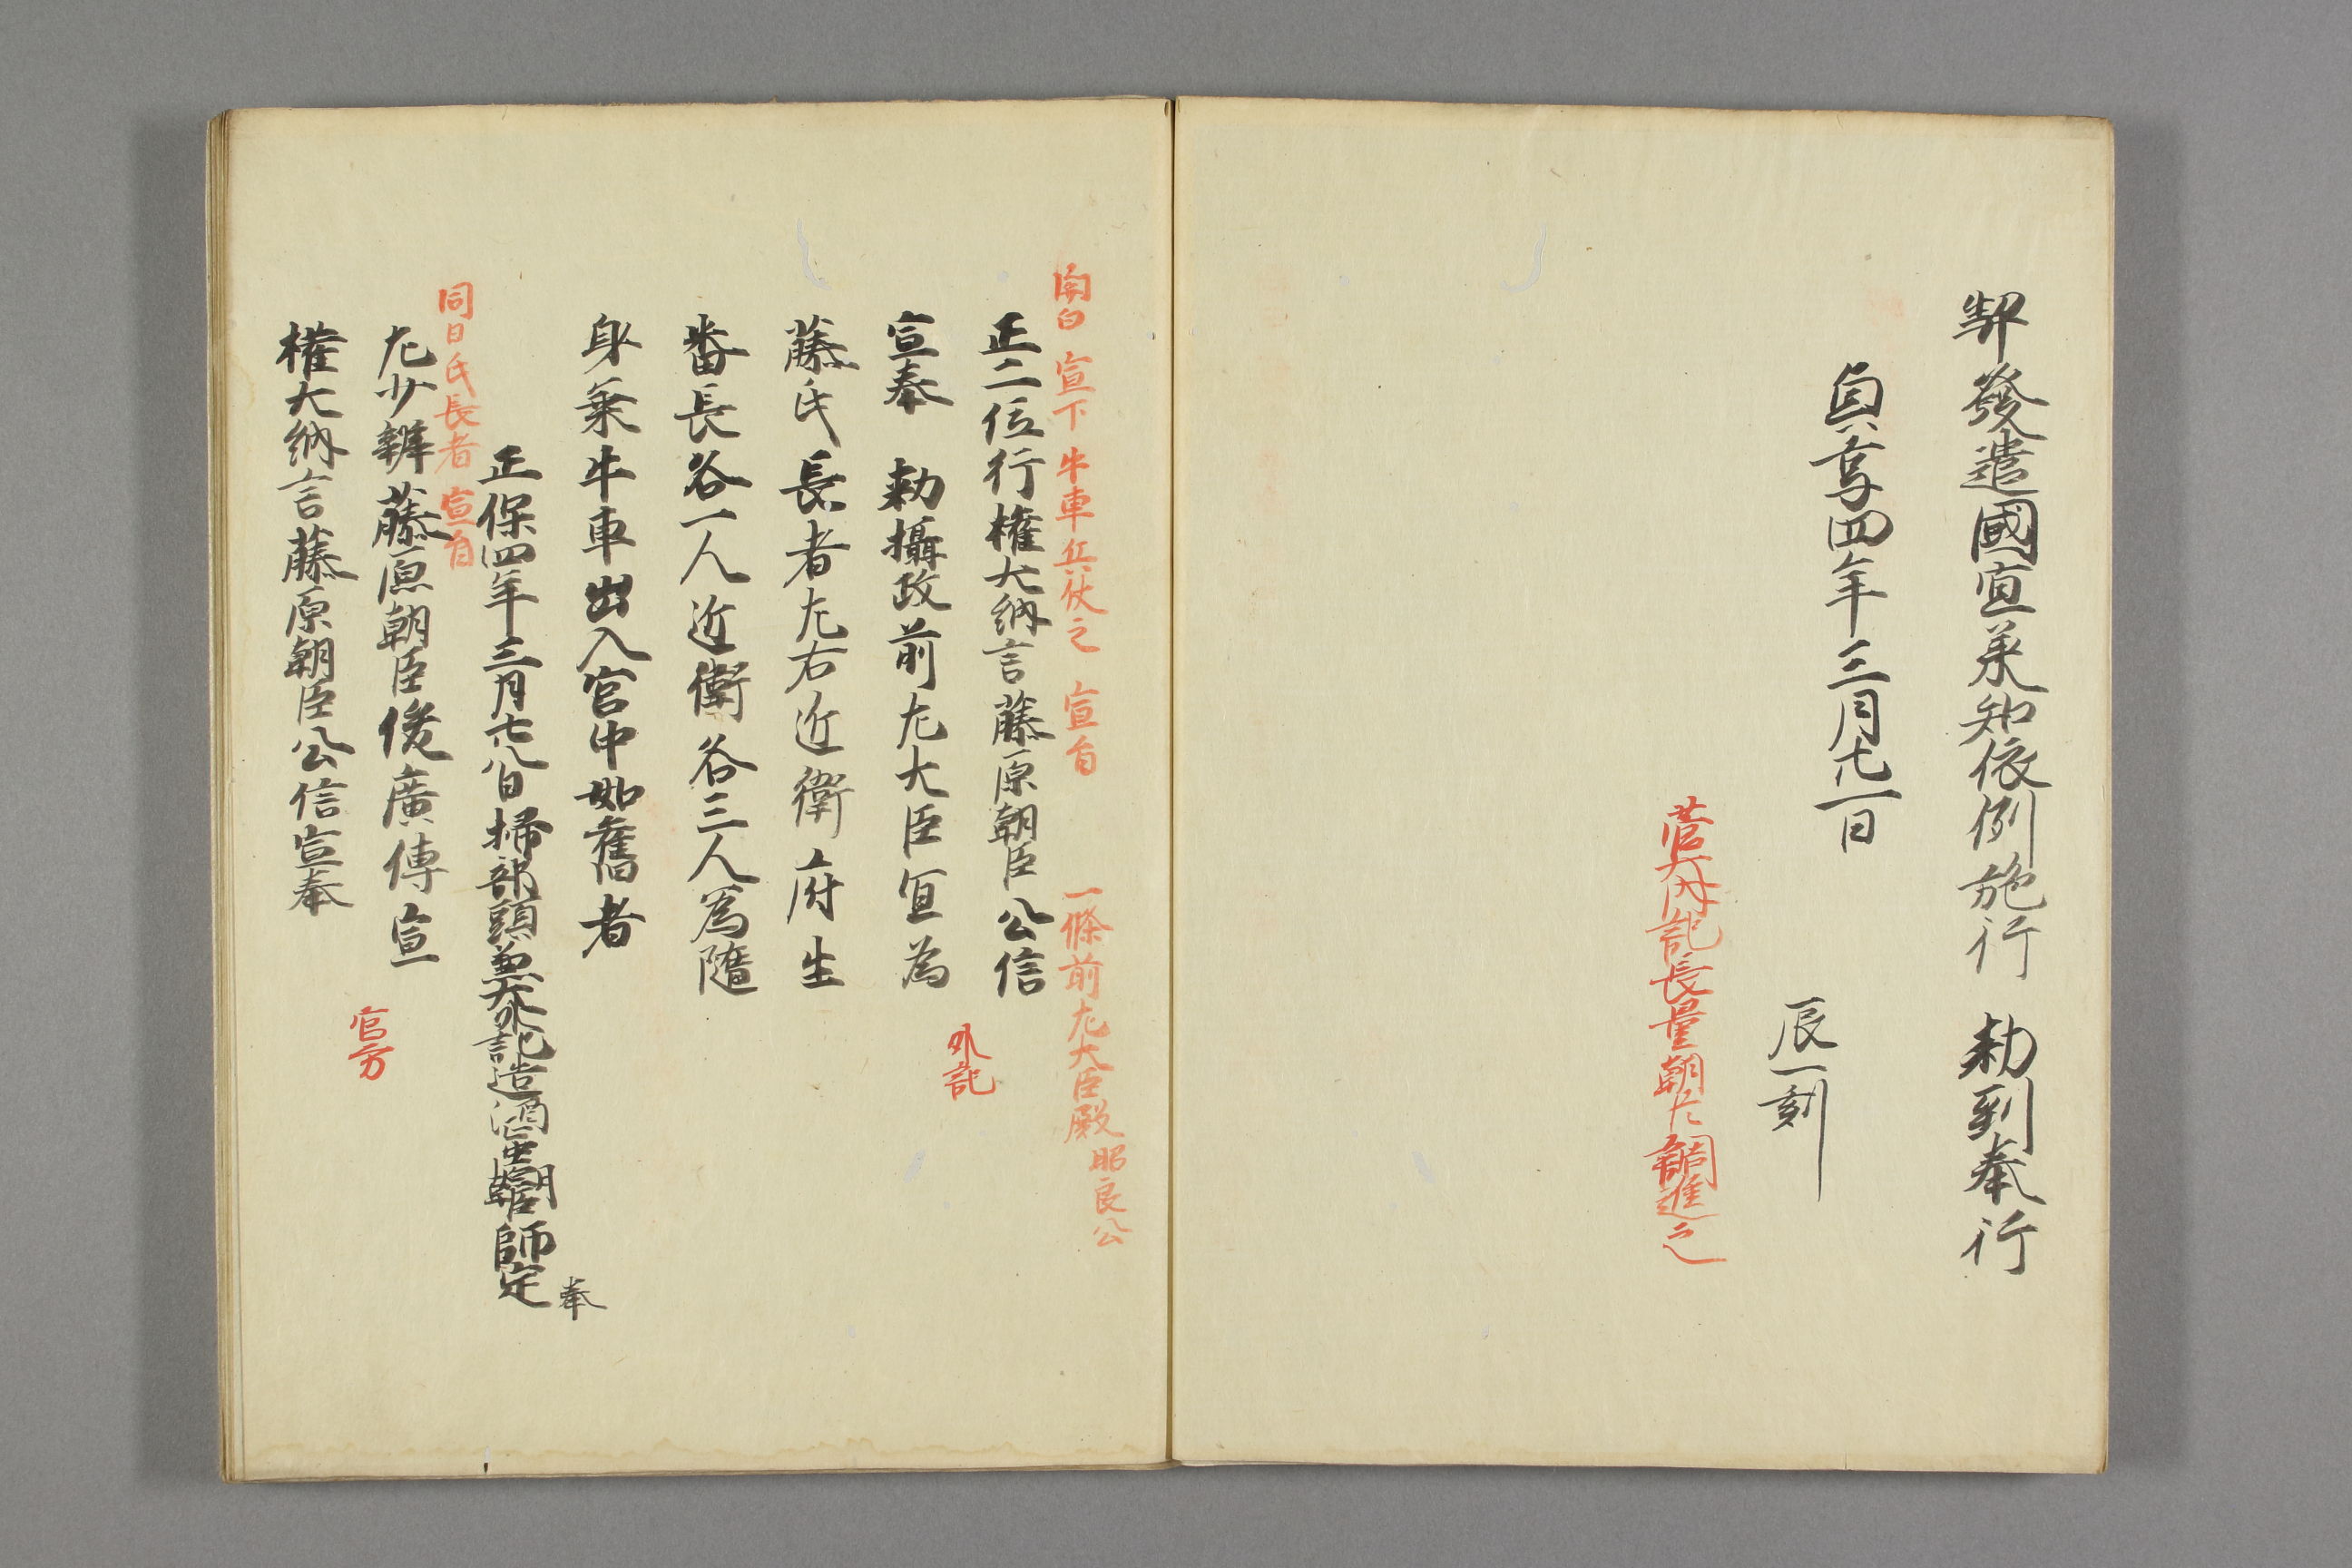 契發遣國宜承知依例施行　勅到奉行
貞享四年三月廿一日
辰一刻
菅大内記長量朝臣調進之
関白　宣下牛車兵仗之　宣旨　一條前左大臣殿昭良公
正二位行權大納言藤原朝臣公信
外記
宣奉　勅攝政前左大臣宜為
藤氏長者左右近衛府生
番長各一人近衛各三人為随
身乗牛車出入宮中如舊者
正保四年三月廿八日掃部頭兼大外記造酒正中原朝臣師定奉
同日氏長者　宣旨
左少辨藤原朝臣俊廣傳宣
官方
權大納言藤原朝臣公信宣奉